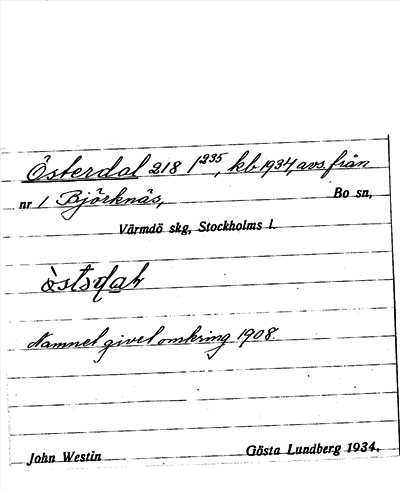 Österdal 218 1²³⁵, kb. 1934, avs. från
nr 1 Björknäs, Bo sn,
Värmdö skg, Stockholms l.
Namnet givet omkring 1908.
John Westin Gösta Lundberg 1934.